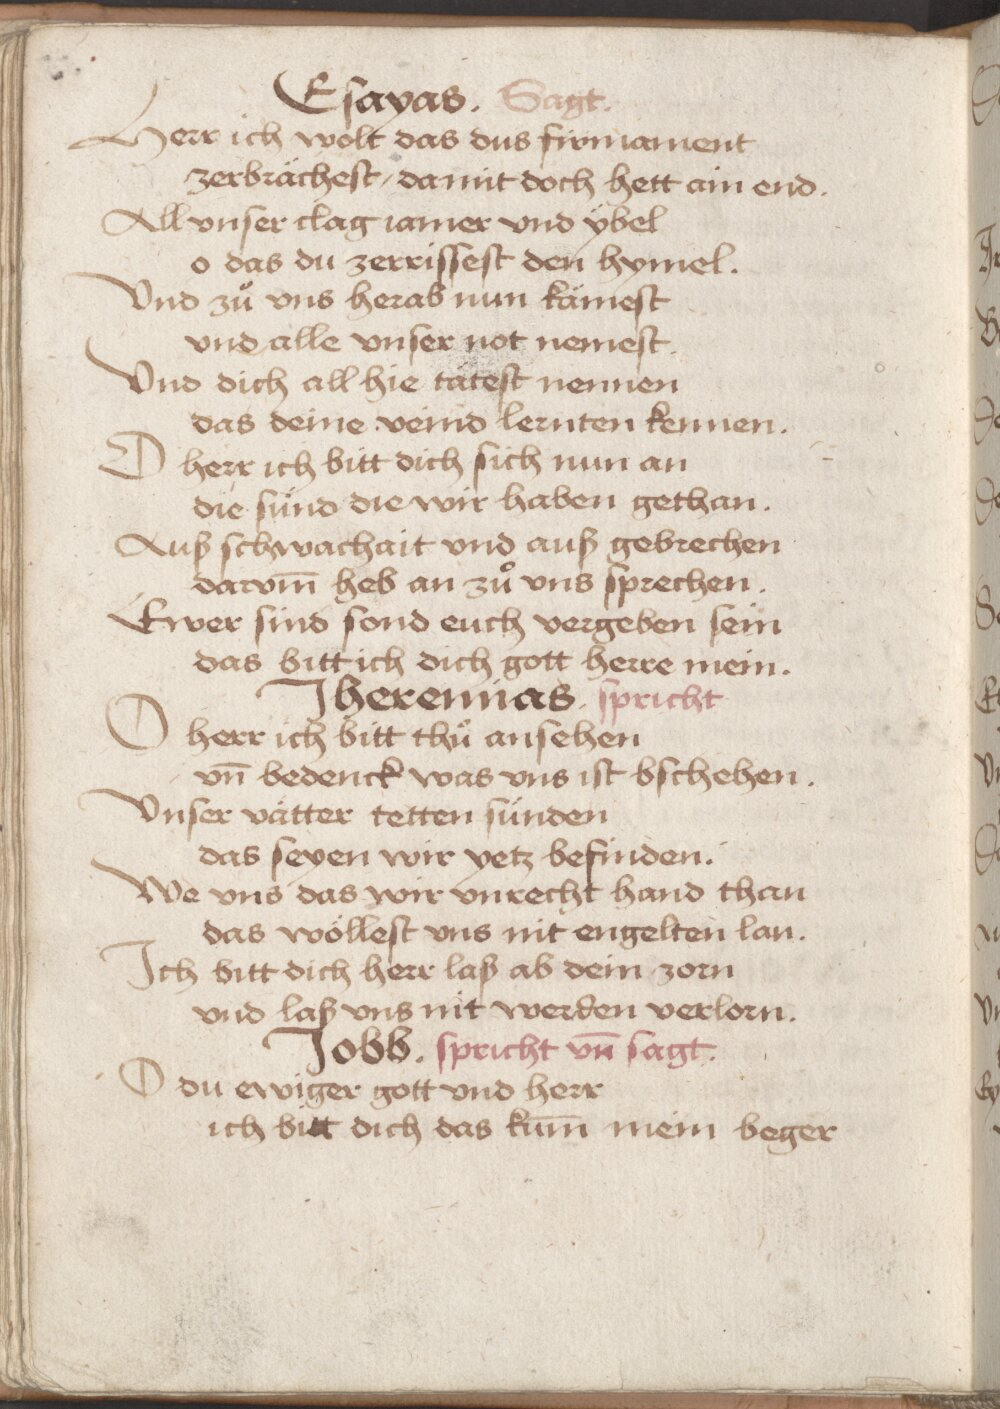 Esayas. Sagt.
Herr ich wolt das dus firmament
zerbrächest / damit doch hett ain end.
All vnser clag iamer vnd ÿbel
o das du zerrissest den hymel.
Vnd zů vns herab nun kämest
vnd alle vnser not nemest.
Vnd dich all hie tätest nennen
das deine veind lernten kennen.
O herr ich bitt dich sich nun an
die sünd die wir haben gethan.
Auß schwachait vnd auß gebrechen
darvm̄ heb an zů vns sprechen.
Ewer sind sond euch vergeben sein
das bitt ich dich gott herre mein.
Jheremias. spricht
O herr ich bitt thů ansehen
vn̄ bedenck was vns ist bschehen.
Vnser vätter tetten sünden
das seyen wir yetz befinden.
We vns das wir vnrecht hand than
das wöllest vns nit engelten lan.
Ich bitt dich herr laß ab dein zorn
vnd laß vns nit werden verlorn.
Jobb. spricht vn̄ sagt.
O du ewiger gott vnd herr
ich bitt dich das kum̄ mein beger